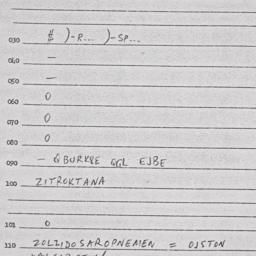 030 $ )-R... )-SP...
040 —
050 —
060 0
070 0
080 0
090 - QBURKQE GGL EJBE
100 ZITROKTANA
101 0
110 ZOLZIDOSAROPNEMEN = OJSTON